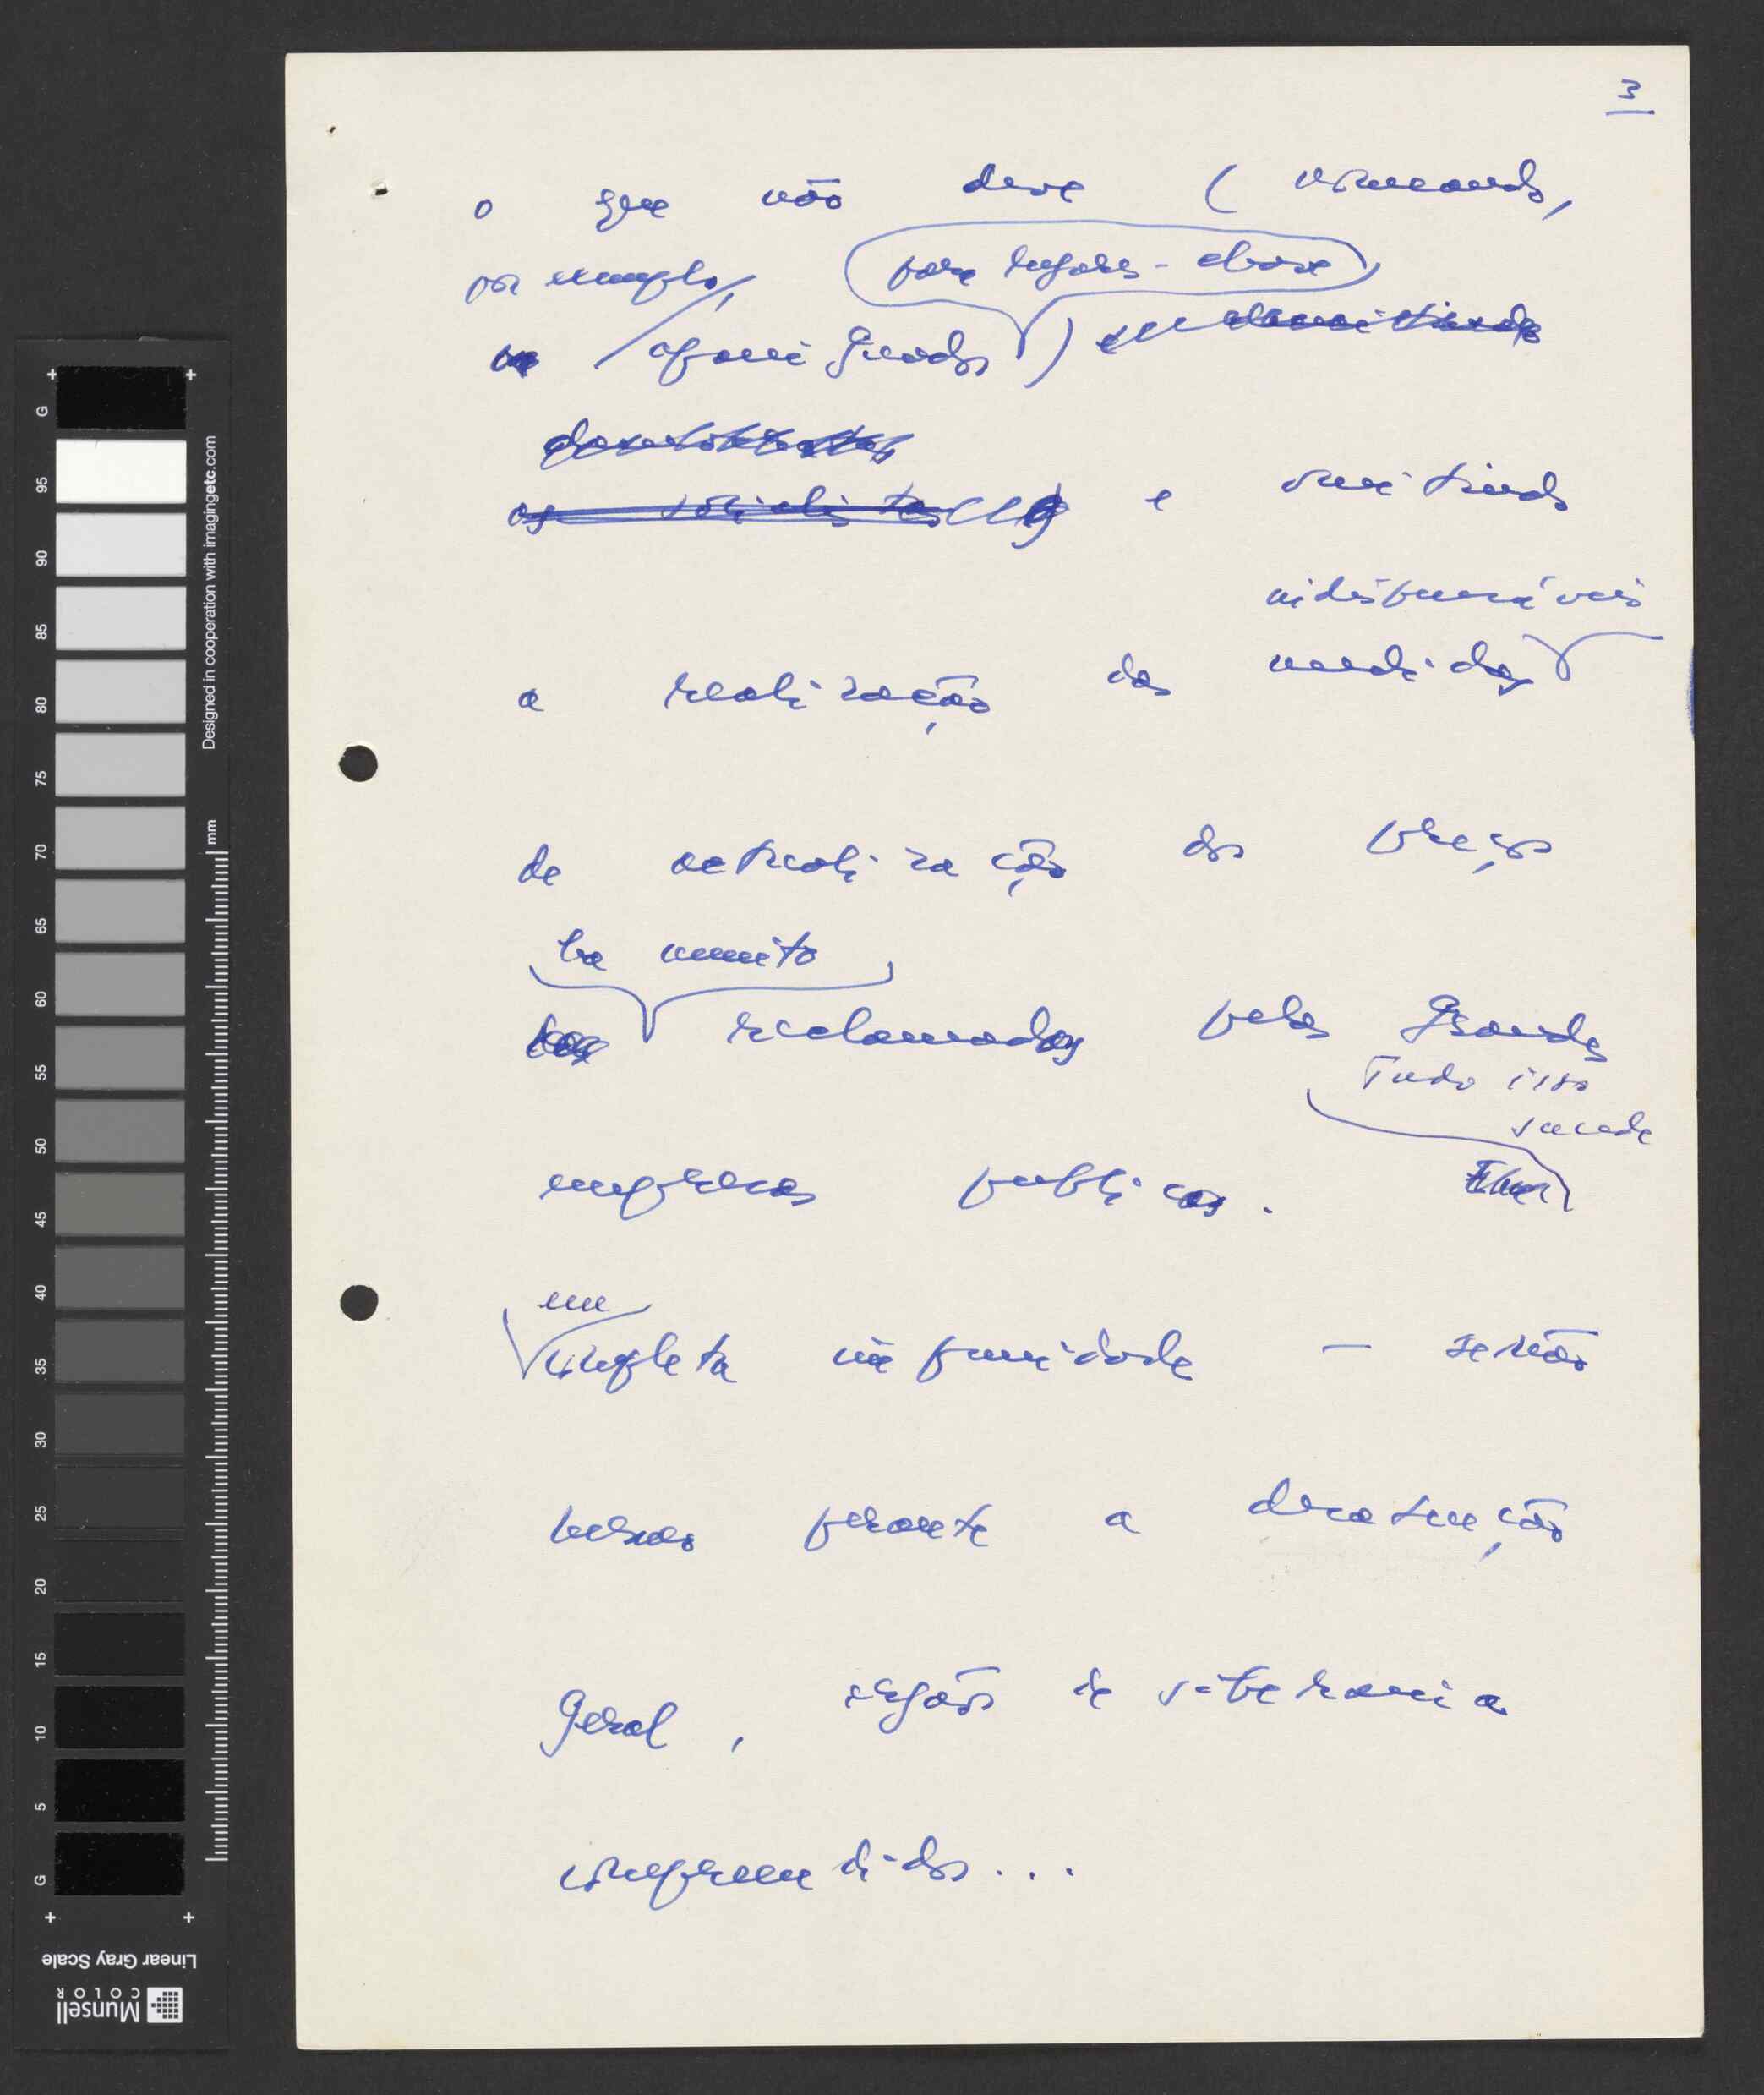 3
o que não deve ( nomeando,
por exemplo, para lugares-chave
apaniguados )
e omitindo
indispensáveis
a realização das medidas
de actualização dos preços
há muito
reclamadas pelas grandes
Tudo isso
sucede
empresas publicas.
em
completa impunidade — senão
mesmo perante a
geral, órgãos de soberania
compreendidos...
G
95
90
85
80
75
70
65
60
55
50
45
40
35
30
25
20
15
10
5
G
Designed in cooperation with imagingetc.com
mm
Linear Gray Scale
Munsell
COLOR